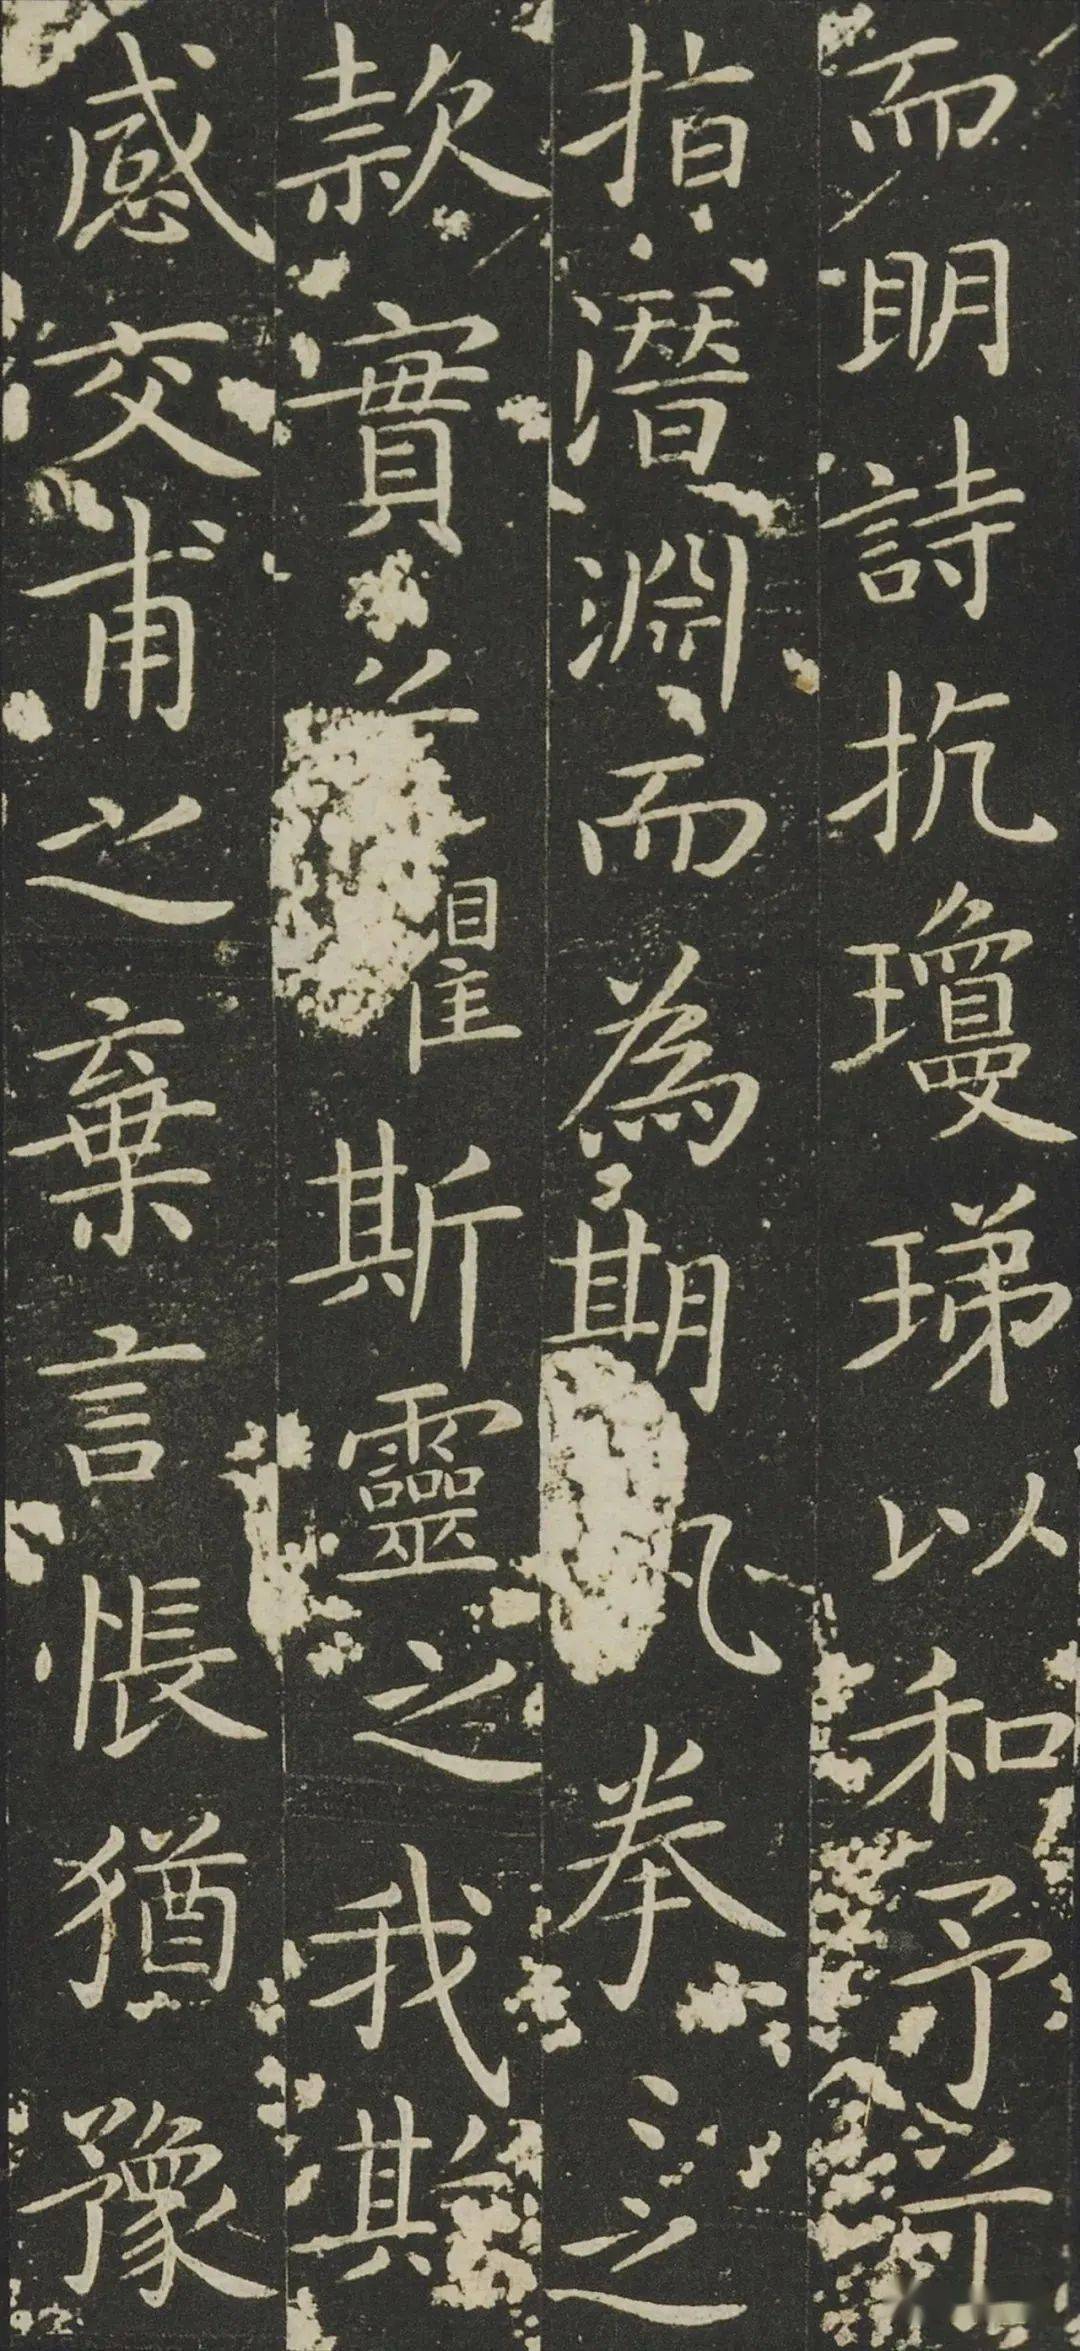 而明詩抗瓊珶以和予兮
指潛淵而為期執拳之
款實兮懼斯靈之我斯
感交甫之棄言悵猶豫